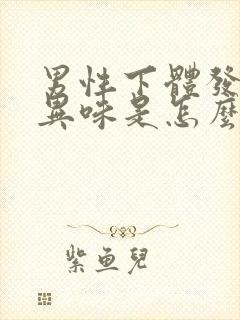 男性下體發
異味是怎麼
紫魚兒